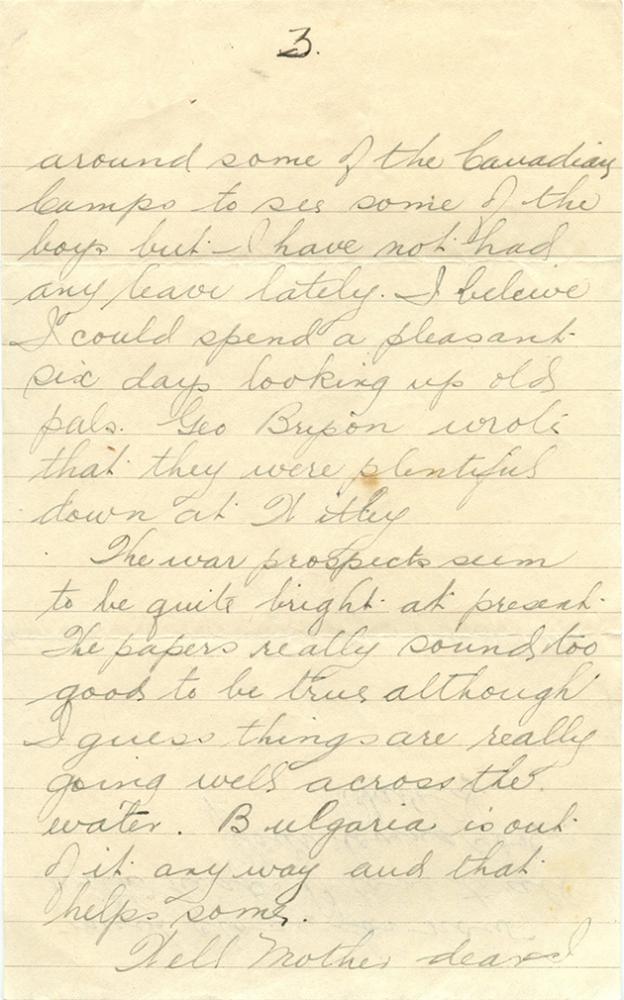 3.
around some of the Canadian
Camps to see some of the
boys but I have not had
any leave lately. I beleive
I could spend a pleasant
six days looking up old
pals. Geo wrote
that they were plentiful
down at Witley
The war prospects seem
to be quite bright at present.
The papers really sound too
good to be true although
I guess things are really
going well across the
water. Bulgaria is out
of it any way and that
helps some.
Well Mother dear I